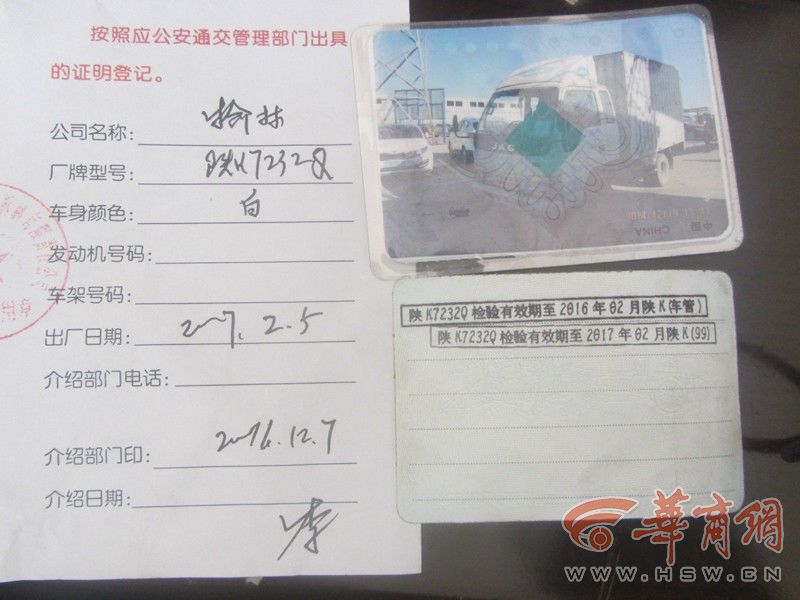 按照应公安通交管理部门出具
的证明登记。
公司名称: 榆林
厂牌型号: 陕K7232Q
车身颜色: 白
发动机号码:
车架号码:
出厂日期: 2007.2.5
介绍部门电话:
介绍部门印: 2016.12.7
介绍日期:
李
JAC
中国
CHINA
陕 K7232Q 检验有效期至 2016 年 02 月陕 K(车管)
陕 K7232Q 检验有效期至 2017 年 02 月陕 K(99)
華商網
WWW.HSW.CN